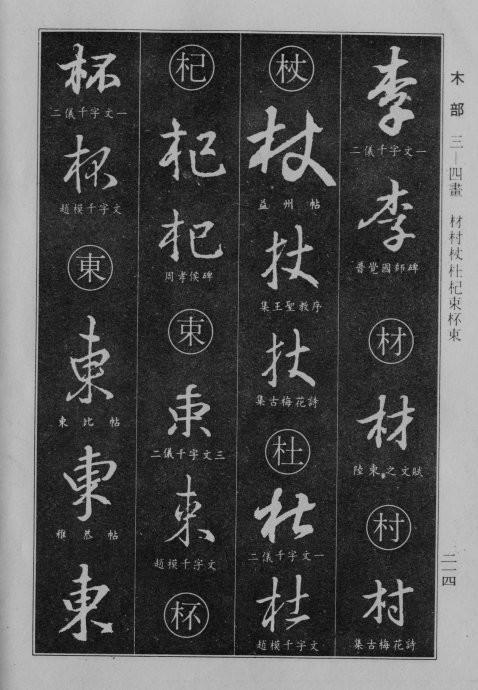 木部 三—四畫 材村杖杜杞束杯東
李
二儀千字文一
李
普覺國師碑
材
材
陸東之文賦
村
村
集古梅花詩
杖
杖
益州帖
杖
集王聖教序
杖
集古梅花詩
杜
杜
二儀千字文一
杜
趙模千字文
杞
杞
杞
周孝侯碑
束
束
二儀千字文三
束
趙模千字文
杯
杯
二儀千字文一
杯
趙模千字文
東
東
東比帖
東
雅恭帖
東
二一四